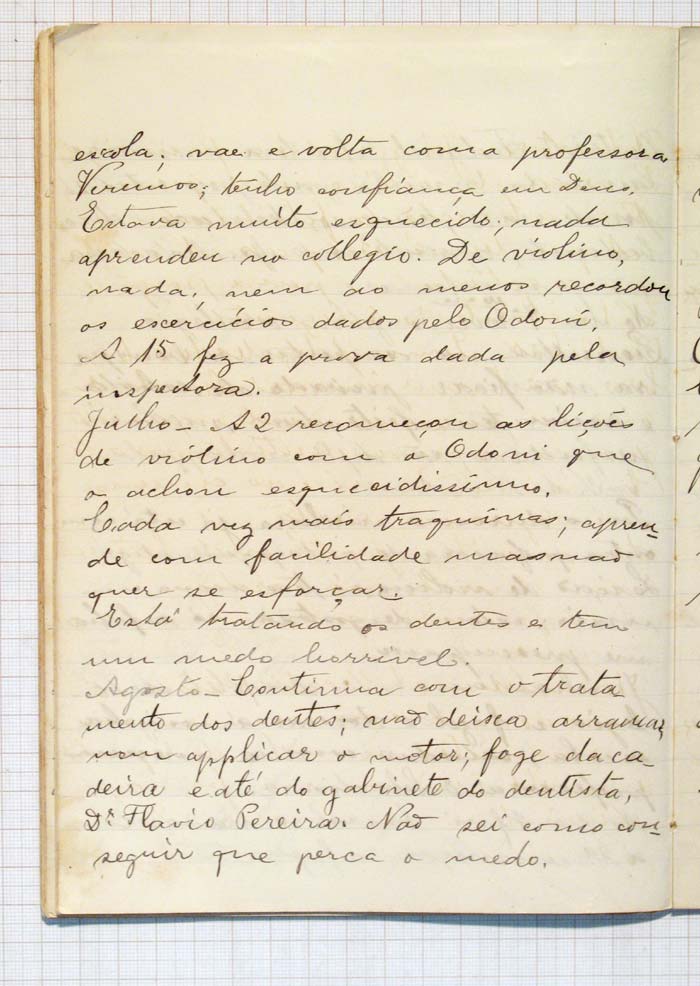 escola; vae e volta com a professora
; tenho confiança em Deus.
Estava muito esquecido; nada
aprendeu no collegio. De violino,
nada; nem ao menos recordou
os escercícios dados pelo Odoni.
A 15 fez a prova dada pela
inspectora.
Julho - A 2 recomeçou as lições
de violino com o Odoni que
o achou esquecidissimo.
Cada vez mais traquinas; apren-
de com facilidade mas não
quer se esforçar.
Está tratando os dentes e tem
um medo horrivel.
Agosto - Continua com o trata
mento dos dentes; não deixa arrancar,
nem applicar o motor; foge da ca-
deira e até do gabinete do dentista,
Dr. Flavio Pereira. Não sei como con-
seguir que perca o medo.